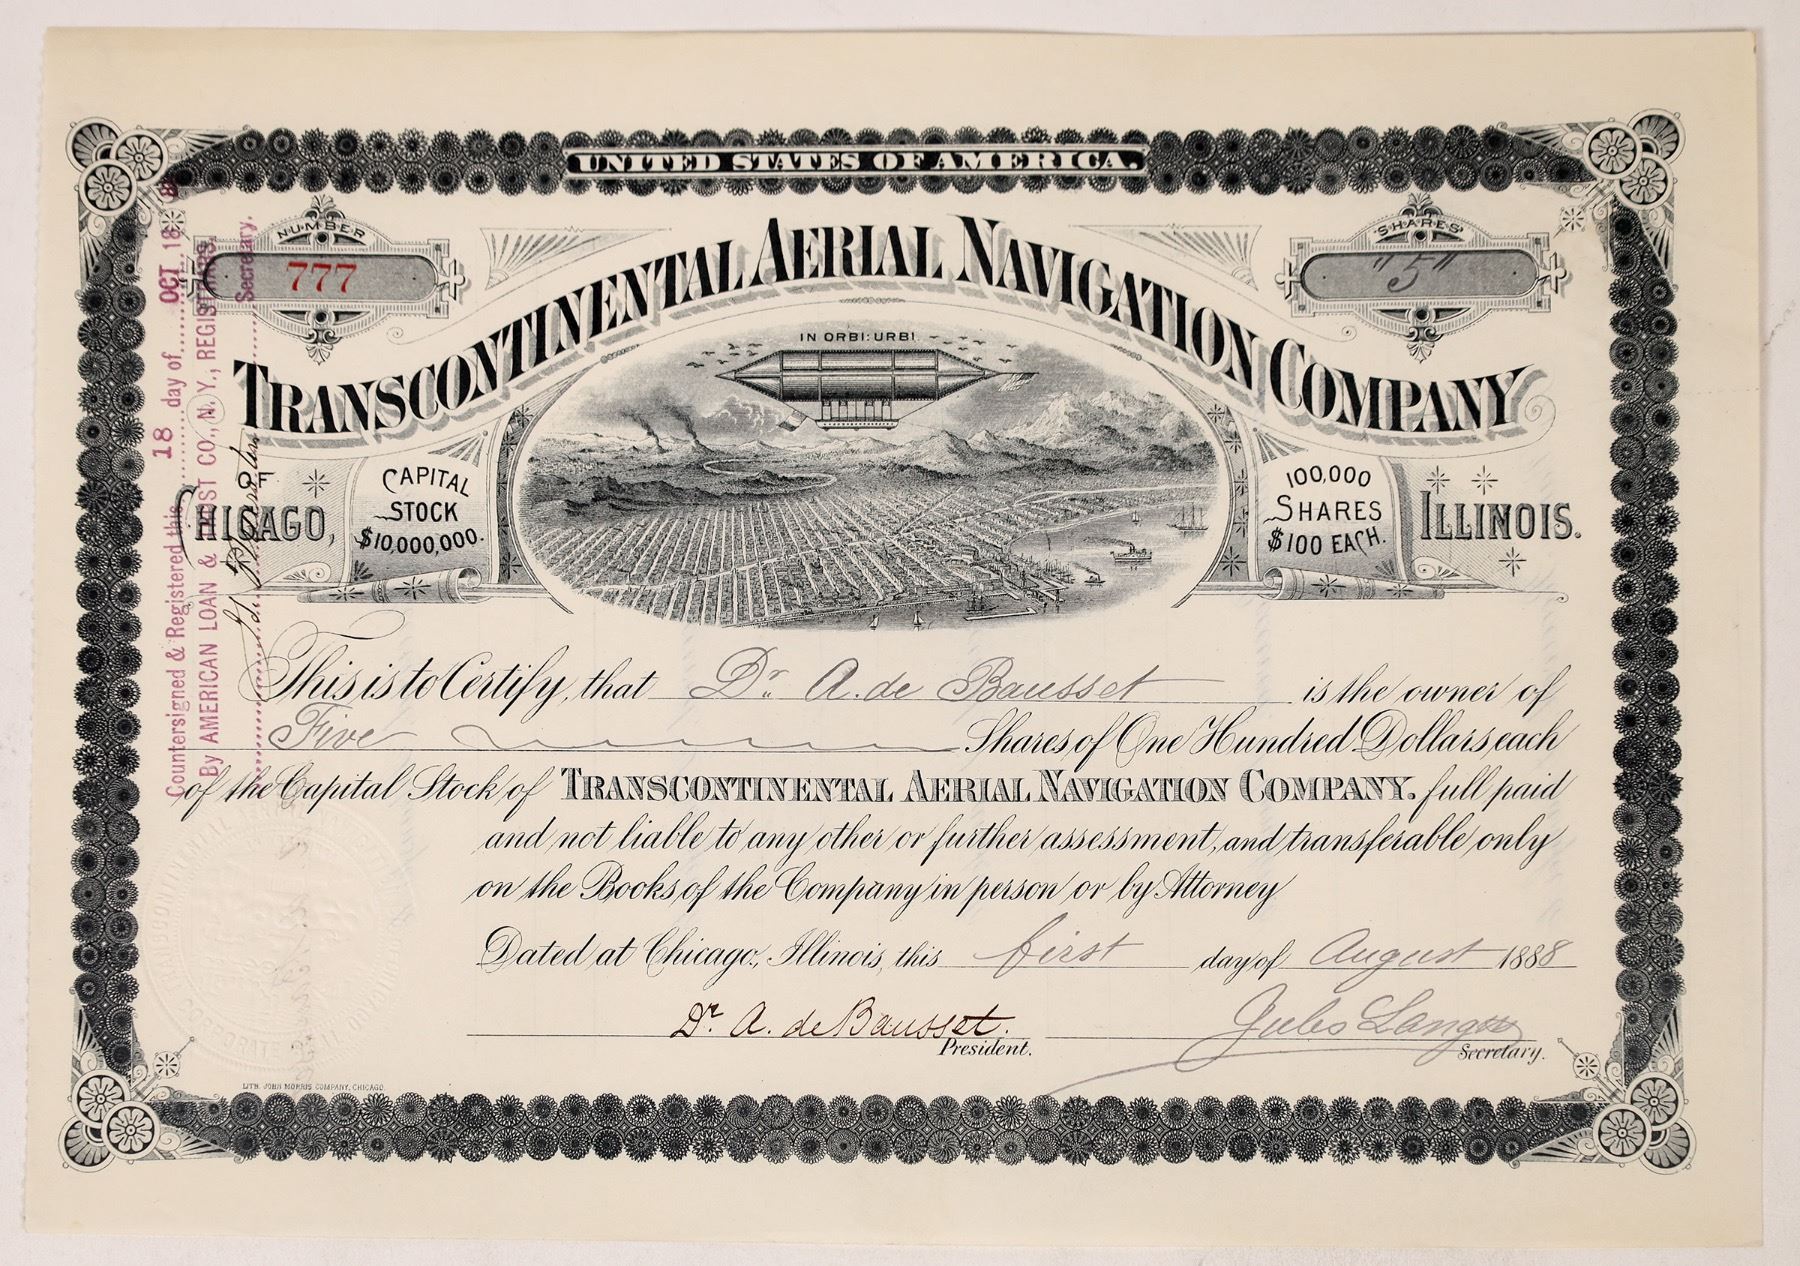 UNITED STATES OF AMERICA.
NUMBER
777
SHARES
"5"
TRANSCONTINENTAL AERIAL NAVIGATION COMPANY
IN ORBI: URBI
OF
CHICAGO,
CAPITAL
STOCK
$10,000,000.
100,000
SHARES
$100 EACH.
ILLINOIS.
This is to Certify, that Dr. A. de Bausset is the owner of
Five Shares of One Hundred Dollars each
of the Capital Stock of TRANSCONTINENTAL AERIAL NAVIGATION COMPANY. full paid
and not liable to any other or further assessment, and transferable only
on the Books of the Company in person or by Attorney
Dated at Chicago, Illinois, this first day of August 1888
Dr. A. de Bausset.
President.
Jules
Secretary.
LITH. JOHN MORRIS COMPANY, CHICAGO.
Countersigned & Registered this 18 day of OCT 18
By AMERICAN LOAN & TRUST CO., N. Y., REGISTRARS.
Secretary.